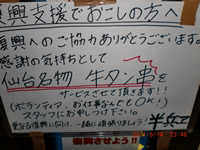 復興支援でおこしの方へ
復興へのご協力ありがとうございます。
感謝の気持ちとして
仙台名物 牛タン串を
サービスさせて頂きます!!
(ボランティア、お仕事などでもOK!)
スタッフにお申しつけ下さい。
更なる復興に向け、一緒に頑張りましょう!
復興させよう!!